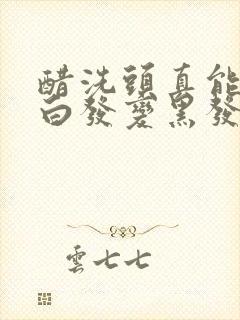 醋洗頭真能
白發變黑發
雲七七